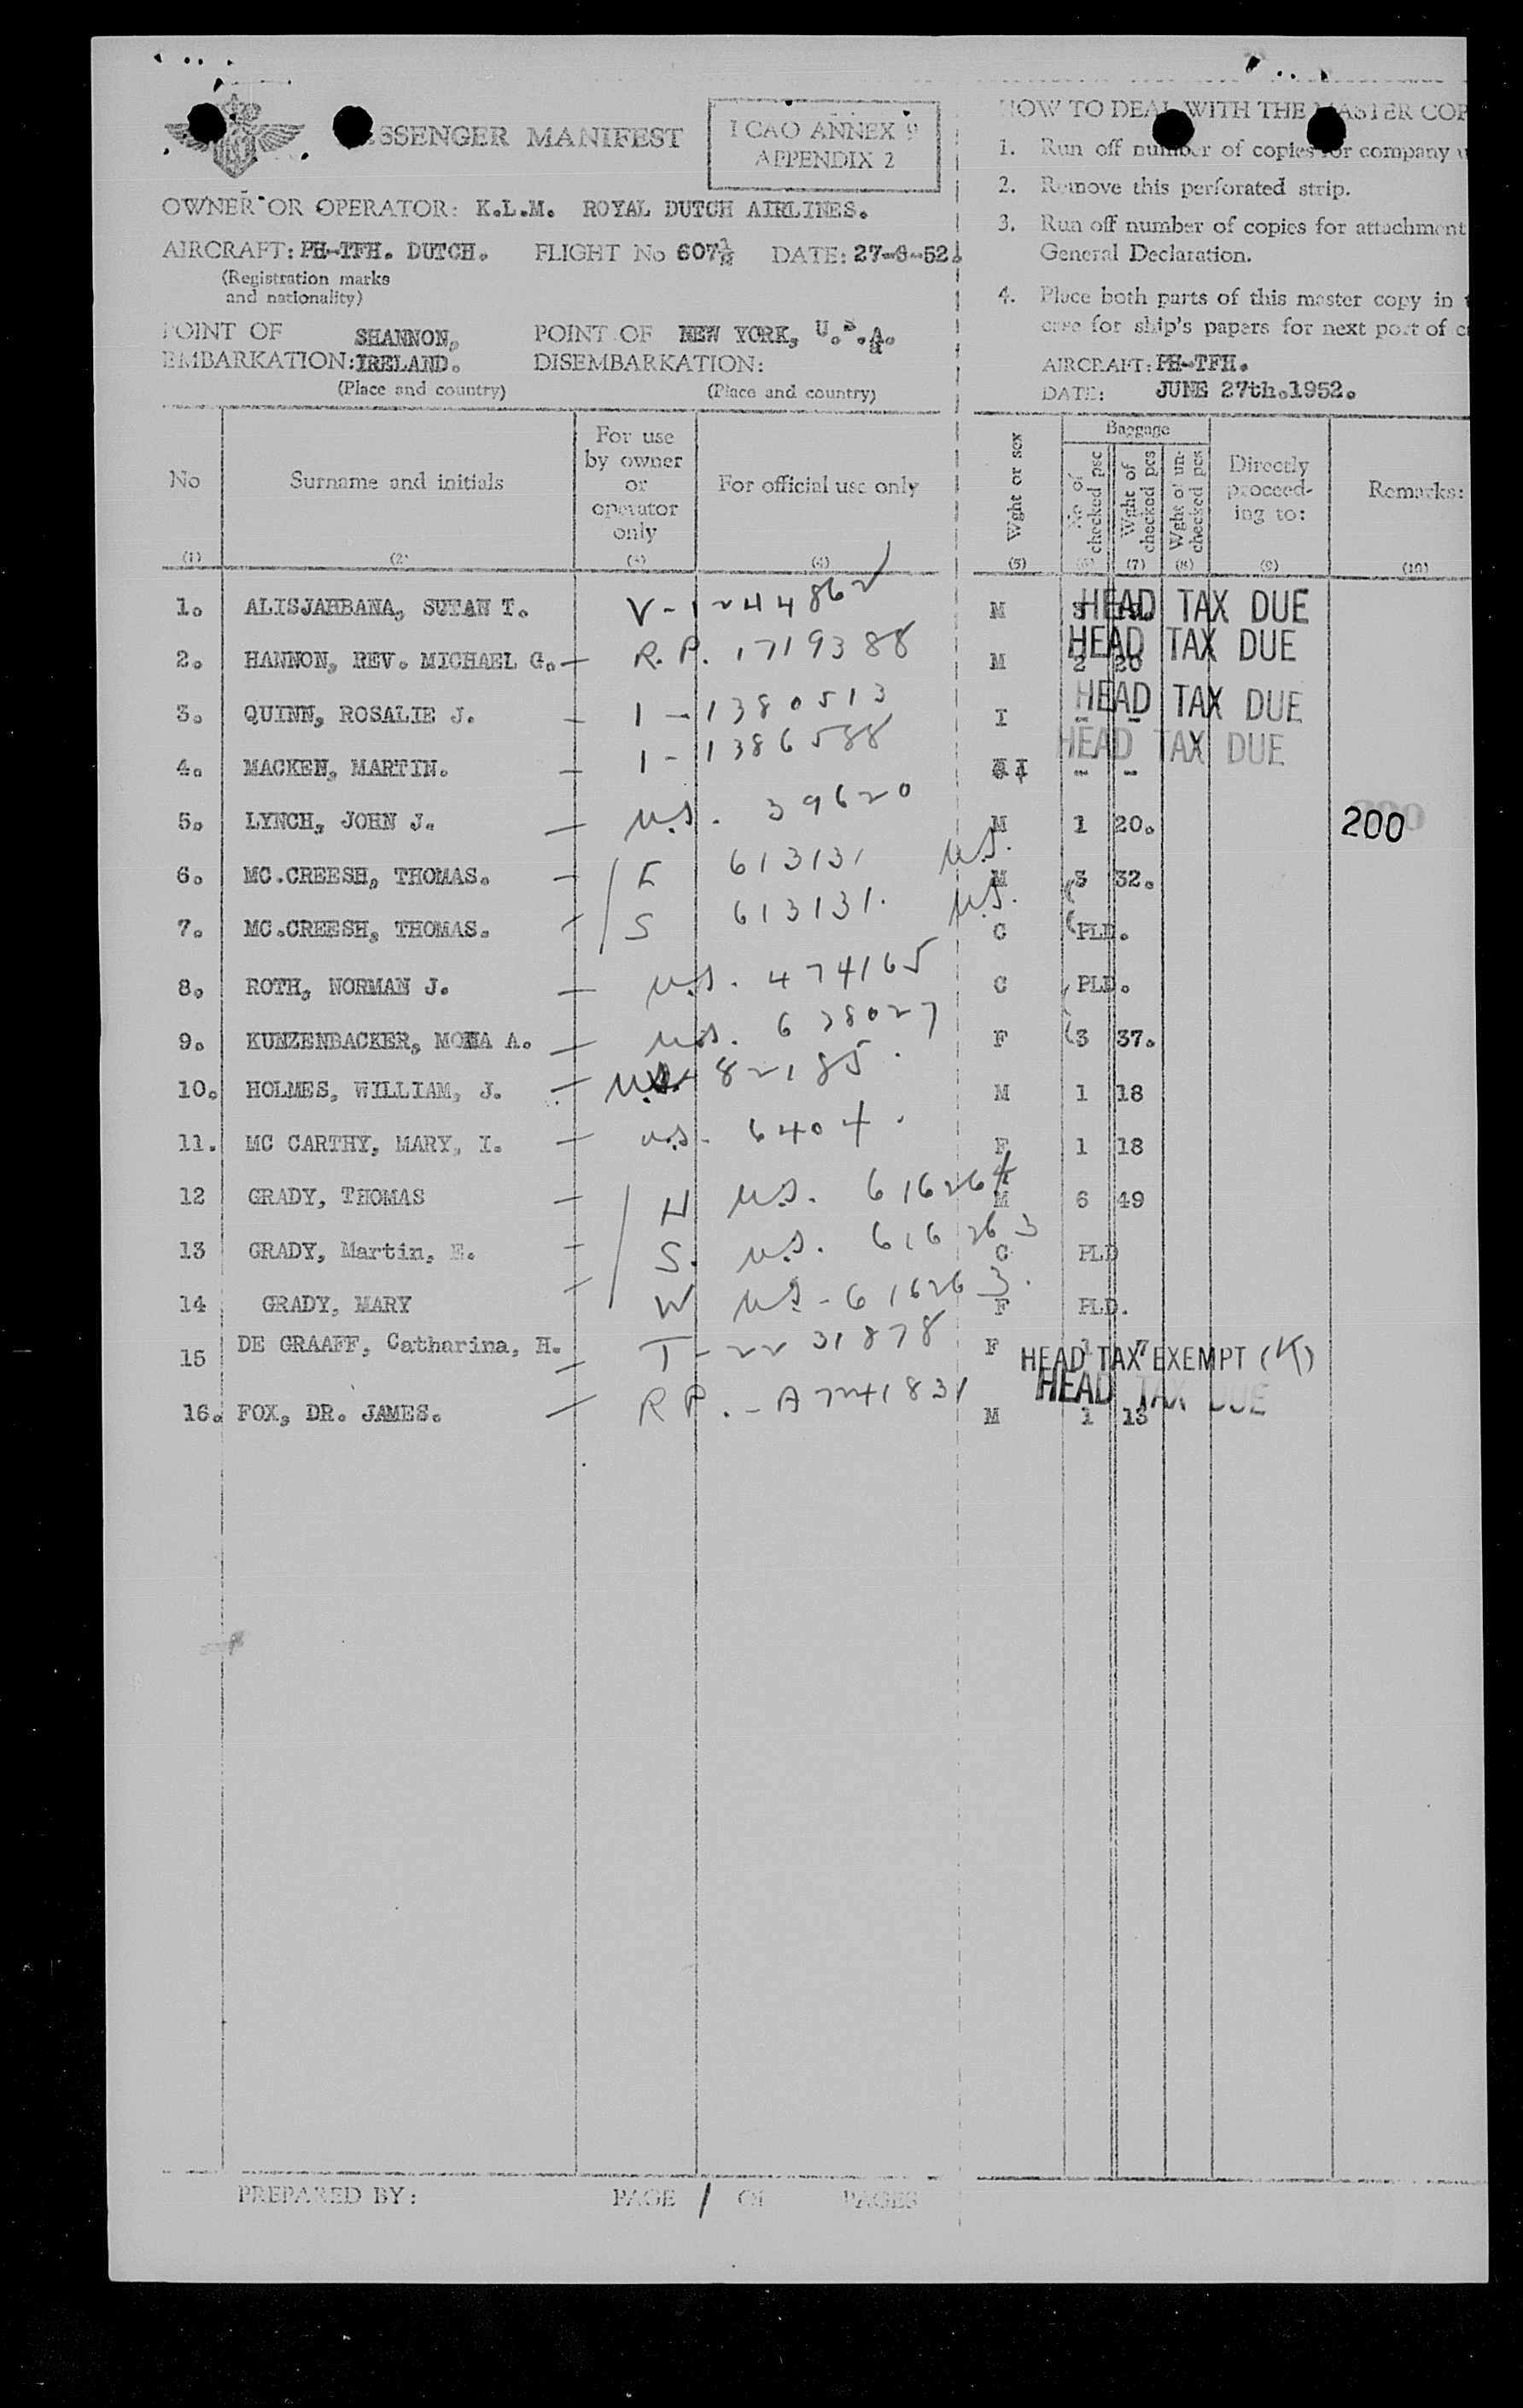 PASSENGER MANIFEST
ICAO ANNEX 9
APPENDIX 2
OWNER OR OPERATOR: K.L.M. ROYAL DUTCH AIRLINES.
AIRCRAFT: PH-TFH. DUTCH. FLIGHT No 607 DATE: 27-6-52.
(Registration marks
and nationality)
POINT OF SHANNON, POINT OF NEW YORK, U.S.A.
EMBARKATION: IRELAND. DISEMBARKATION:
(Place and country) (Place and country)
HOW TO DEAL WITH THE MASTER COP
1. Run off number of copies for company
2. Remove this perforated strip.
3. Run off number of copies for attachment
General Declaration.
4. Place both parts of this master copy in
case for ship's papers for next port of
AIRCRAFT: PH-TFH.
DATE: JUNE 27th.1952.
No Surname and initials For use by owner or operator only For official use only Wght or sex Baggage No of checked psc Wght of checked pcs Wght of un-checked pcs Directly proceed-ing to: Remarks:
(1) (2) (3) (4) (5) (6) (7) (8) (9) (10)
1. ALISJAHBANA, SUTAN T. V-1244862 M 3 HEAD TAX DUE
2. HANNON, REV. MICHAEL G. R.P. 1719388 M 2 20 HEAD TAX DUE
3. QUINN, ROSALIE J. I-1380513 I - - HEAD TAX DUE
4. MACKEN, MARTIN. I-1386588 I - - HEAD TAX DUE
5. LYNCH, JOHN J. U.S. 39620 M 1 20. 200
6. MC.CREESH, THOMAS. F 613131 U.S. M 3 32.
7. MC.CREESH, THOMAS. S 613131. U.S. C PLD.
8. ROTH, NORMAN J. U.S. 474165 C PLD.
9. KUNZENBACKER, MONA A. U.S. 628027 F 3 37.
10. HOLMES, WILLIAM, J. U.S. 82185. M 1 18
11. MC CARTHY, MARY, I. U.S. 6404. F 1 18
12 GRADY, THOMAS H U.S. 616264 M 6 49
13 GRADY, Martin, E. S. U.S. 616263 C PLD
14 GRADY, MARY W U.S-616263. F PLD.
15 DE GRAAFF, Catharina, H. T-2231878 F 1 7 HEAD TAX EXEMPT (K)
16. FOX, DR. JAMES. RP.-A7241831 M 1 13 HEAD TAX DUE
PREPARED BY: PAGE 1 OF PAGES